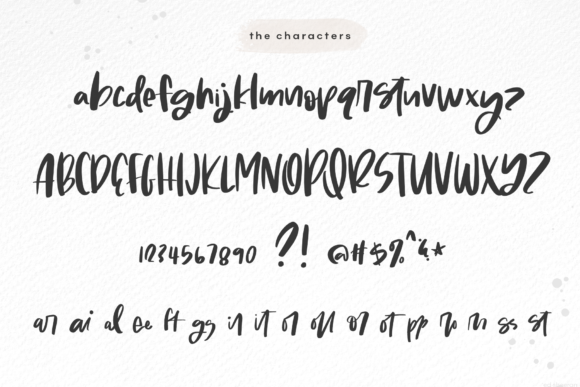 the characters
abcdefghijklmnopqrstuvwxyz
ABCDEFGHIJKLMNOPQRSTUVWXYZ
1234567890 ?! @#$%^&*
ar ai al ee ft gg ir it or ot pp ss st